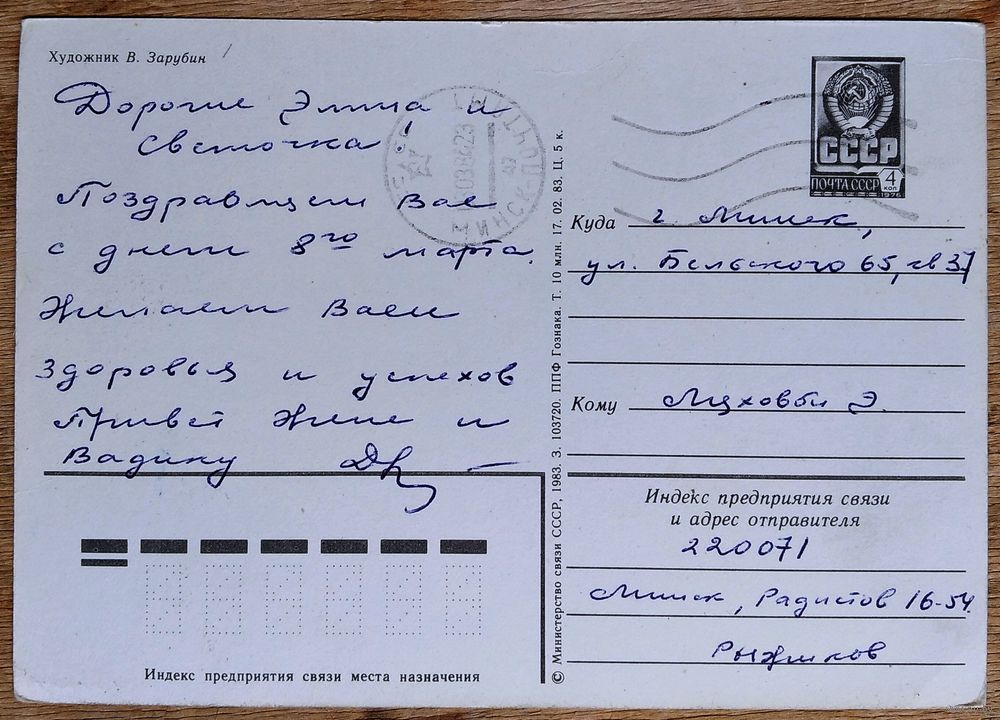 Художник В. Зарубин
Дорогие Элина и
Светочка!
Поздравляем Вас
с днем 8го марта.
Желаем Вам
здоровья и успехов
Привет Жене и
Вадику
Индекс предприятия связи места назначения
© Министерство связи СССР, 1983. З. 103720. ППФ Гознака. Т. 10 млн. 17. 02. 83. Ц. 5 к.
СССР
ПОЧТА СССР
4
КОП
1976
МИНСК
Куда г. Минск,
ул. Бельского 65, кв 37
Кому Э.
Индекс предприятия связи
и адрес отправителя
220071
Минск, Радистов 16-54
Рыжиков